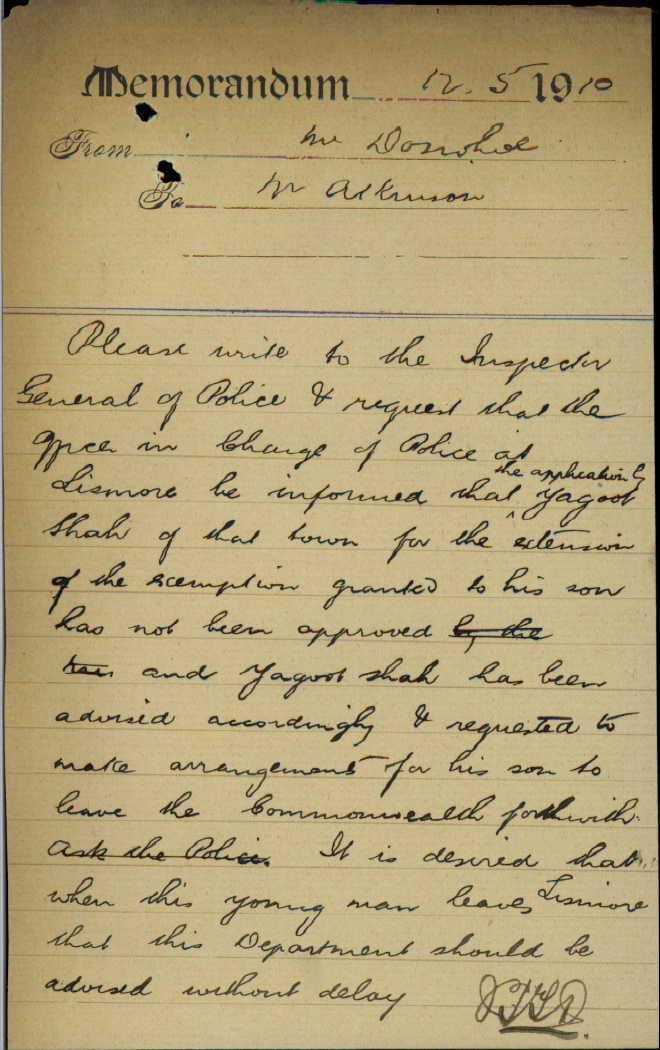 Memorandum 12. 5 1910
From Mr Donohoe
To Mr Atkinson
Please write to the Inspector
General of Police & request that the
Officer in Charge of Police at
Lismore be informed that the application by Yagoot
Shah of that town for the extension
of the exemption granted to his son
has not been approved by the
and Yagoot Shah has been
advised accordingly & requested to
make arrangements for his son to
leave the Commonwealth forthwith.
Ask the Police. It is desired that
when this young man leaves Lismore
that this Department should be
advised without delay